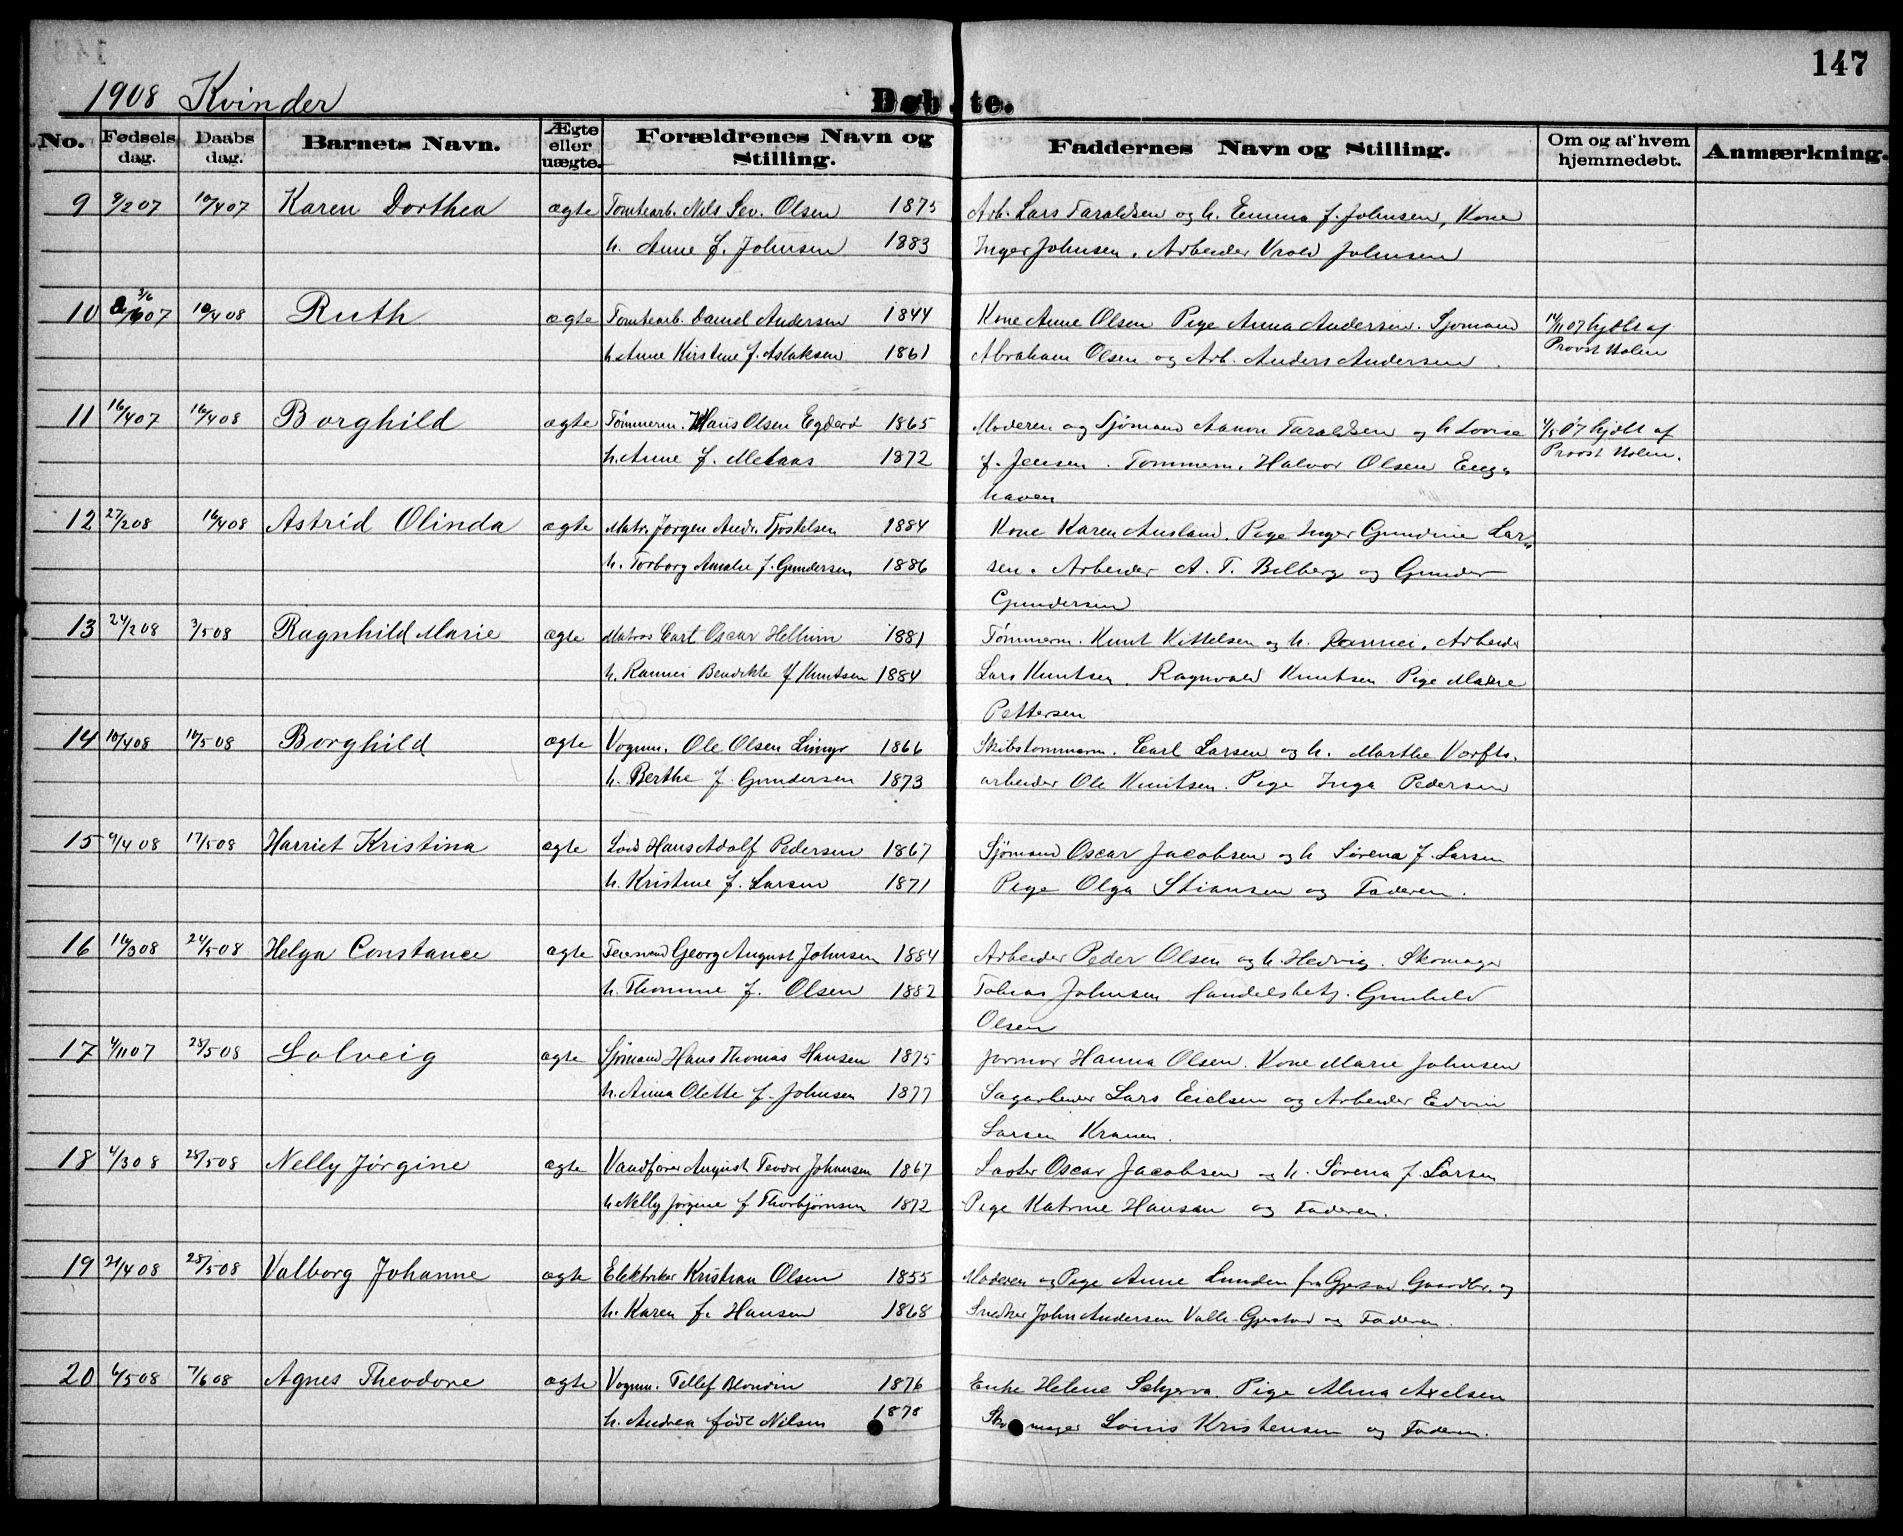 147
1908 Kvinder
Døbte.
No. Fødsels dag. Daabs dag. Barnets Navn. Ægte eller uægte. Forældrenes Navn og Stilling. Faddernes Navn og Stilling. Om og af hvem hjemmedøbt. Anmærkning.
9 9/2 07 10/4 07 Karen Dorthea ægte Tomtearb. Nils Sev. Olsen 1875 Arb. Lars Taraldsen og h. Emma f. Johnsen, Kone
h. Anne f. Johnsen 1883 Inger Johnsen, Arbeider Vrold Johnsen
10 3/6 07 10/4 08 Ruth ægte Tomtearb. Daniel Andersen 1844 Kone Anne Olsen Pige Anna Andersen. Sjømand 14/11 07 hjdbt af
h. Anne Kirstine f. Aslaksen 1861 Abraham Olsen og Arb. Anders Andersen. Provst Holm
11 16/4 07 16/4 08 Borghild ægte Tømmerm. Hans Olsen Egderd 1865 Moderen og Sjømand Aanon Taraldsen og h Lovise 4/5 07 hjdbt af
h. Anne f. Melaas 1872 f. Jensen. Tømmerm. Halvor Olsen Enge Provst Holm.
haven
12 27/2 08 16/4 08 Astrid Olinda ægte Matr. Jørgen Andr. Tjostelsen 1884 Kone Karen Ausland. Pige Inger Gundine Lar-
h. Torborg Amalie f. Gundersen 1886 sen. Arbeider A. T. Bilberg og Gunder
Gundersen
13 24/2 08 3/5 08 Ragnhild Marie ægte Matros Carl Oscar Hellum 1881 Tømmerm. Knut Kittelsen og h. Rannei. Arbeider
h. Rannei Bendikte f Knutsen 1884 Lars Knutsen. Ragnvald Knutsen. Pige Marie
Pettersen
14 10/4 08 10/5 08 Borghild ægte Vognm. Ole Olsen Limyr 1866 Skibstømmerm. Carl Larsen og h. Marthe Værfts-
h. Berthe f. Gundersen 1873 arbeider Ole Knutsen. Pige Inga Pedersen
15 9/4 08 17/5 08 Harriet Kristina ægte Lods Hans Adolf Pedersen 1867 Sjømand Oscar Jacobsen og h Sørena f. Larsen
h. Kristine f. Larsen 1871 Pige Olga Stiansen og Faderen.
16 16/3 08 24/5 08 Helga Constance ægte Feiersvend Georg August Johnsen 1884 Arbeider Peder Olsen og h. Hedvig. Skomager
h. Thomine f. Olsen 1882 Tobias Johnsen Handelsbetj. Gunhild
Olsen
17 4/11 07 28/5 08 Solveig ægte Sjømand Hans Thomas Hansen 1875 Jormor Hanna Olsen. Kone Marie Johnsen
h. Anna Olette f. Johnsen 1877 Sagarbeider Lars Eielsen og Arbeider Edvin
Larsen Kranen.
18 4/3 08 28/5 08 Nelly Jørgine ægte Vandfører August Teodor Johansen 1867 Laster Oscar Jacobsen og h. Sørena f. Larsen
h Nelly Jørgine f Thorbjørnsen 1872 Pige Katrine Hansen og Faderen.
19 21/4 08 28/5 08 Valborg Johanne ægte Elektriker Kristian Olsen 1855 Moderen og Pige Anne Lunden fra Gjestad. Gaardbr. og
h. Karen f. Hansen 1868 Snedker John Andersen Valle. Gjestad og Faderen.
20 6/5 08 7/6 08 Agnes Theodore ægte Vognm. Tellef Blondin 1876 Enke Helene Schjerva. Pige Alma Axelsen
h. Andrea født Nilsen 1878 Skomager Louis Kristensen og Faderen.